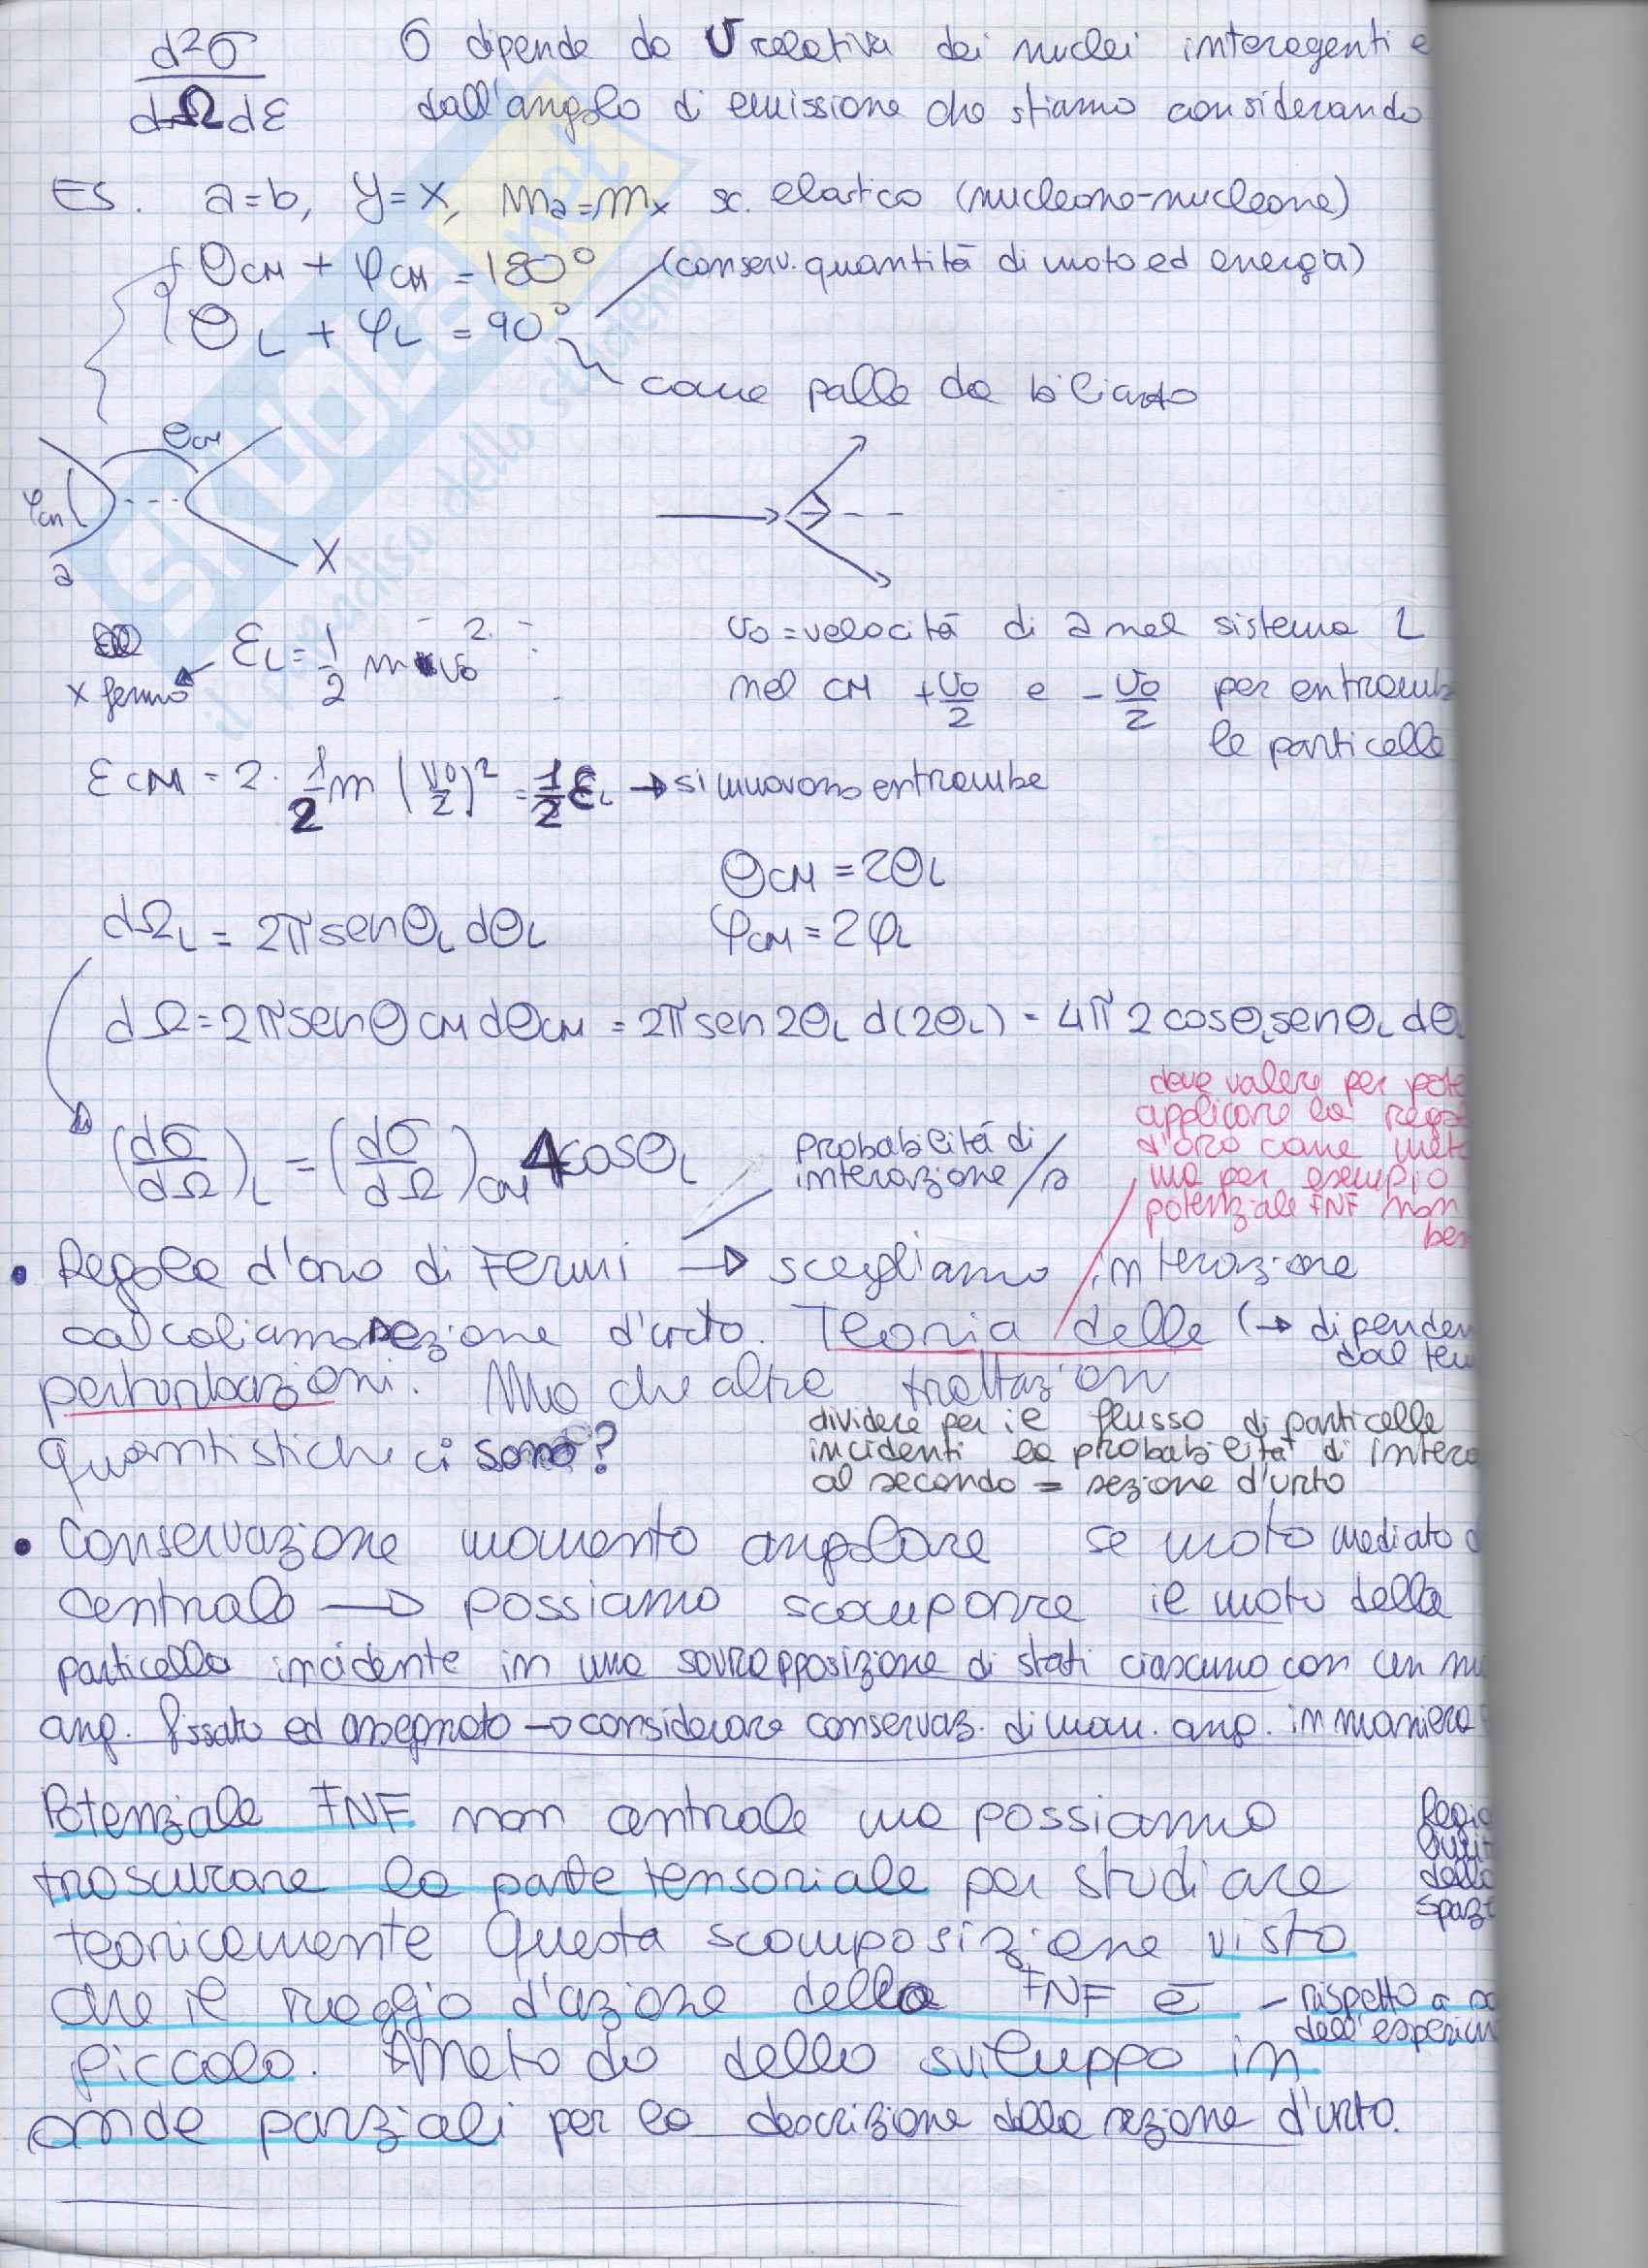 d²σ / dΩ dε
σ dipende da v relativa dei nuclei interagenti e
dall'angolo di emissione che stiamo considerando
ES. a=b, y=x, ma=mx sc. elastico (nucleone-nucleone)
θCM + φCM = 180°
(conserv. quantità di moto ed energia)
θL + φL = 90°
come palle da biliardo
θCM
φCM
a
X
εL = 1/2 m v0²
x fermo
v0 = velocità di a nel sistema L
nel CM +v0/2 e -v0/2 per entramb
le particelle
εCM = 2 · 1/2 m (v0/2)² = 1/2 εL → si muovono entrambe
θCM = 2θL
φCM = 2φL
dΩL = 2π senθL dθL
dΩ = 2π senθCM dθCM = 2π sen2θL d(2θL) = 4π 2 cosθL senθL dθL
(dσ/dΩ)L = (dσ/dΩ)CM 4cosθL
probabilità di
interazione/s
deve valere per pote
applicare la rego
d'oro come met
ma per esempio
potenziale FNF non
ben
• Regola d'oro di Fermi → scegliamo interazione
calcoliamo sezione d'urto. Teoria delle (→ dipenden
dal tem
perturbazioni. Ma che altre trattazioni
quantistiche ci sono?
dividere per il flusso di particelle
incidenti la probabilità di intera
al secondo = sezione d'urto
• Conservazione momento angolare se moto mediato
centrale → possiamo scomporre il moto della
particella incidente in una sovrapposizione di stati ciascuno con un m
ang. fissato ed assegnato → considerare conservaz. di mom. ang. in maniera
Potenziale FNF non centrale ma possiamo
trascurare la parte tensoriale per studiare
teoricamente questa scomposizione visto
che il raggio d'azione della FNF è
piccolo. Metodo dello sviluppo in
onde parziali per la descrizione della sezione d'urto.
Regio
limit
dello
spazi
- rispetto a
dell'esperim
SKUOLA.net
il paradiso dello studente